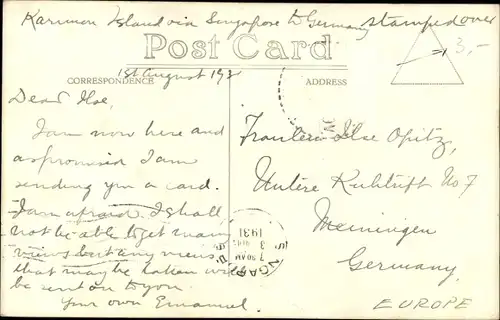 Karimon Island via Singapore to Germany stamped over
3,-
Post Card
CORRESPONDENCE
ADDRESS
1st August 193
Dear Ilse,
I am now here and
as promised I am
sending you a card.
I am afraid I shall
not be able to get many
views but any views
that may be taken will
be sent on to you.
Your own Emanuel.
Fraulein Ilse Opitz,
Untere Kuhtrift No 7
Meiningen
Germany,
EUROPE
1931
7 30 AM